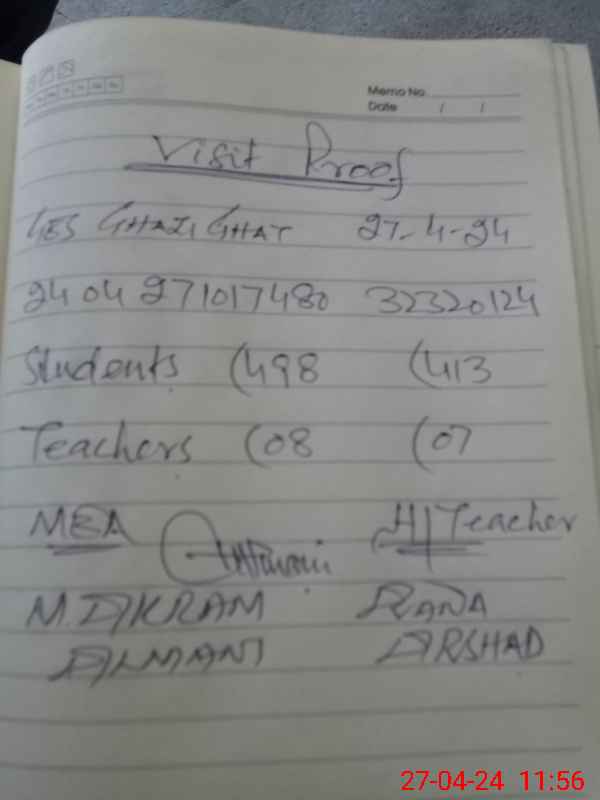 Memo No.
Date / /
Visit Proof
GES GHAZI GHAT 27-4-24
2404271017480 32320124
Students (498 (413
Teachers (08 (07
MEA H/Teacher
M. AKRAM RANA
ALMANI ARSHAD
27-04-24 11:56